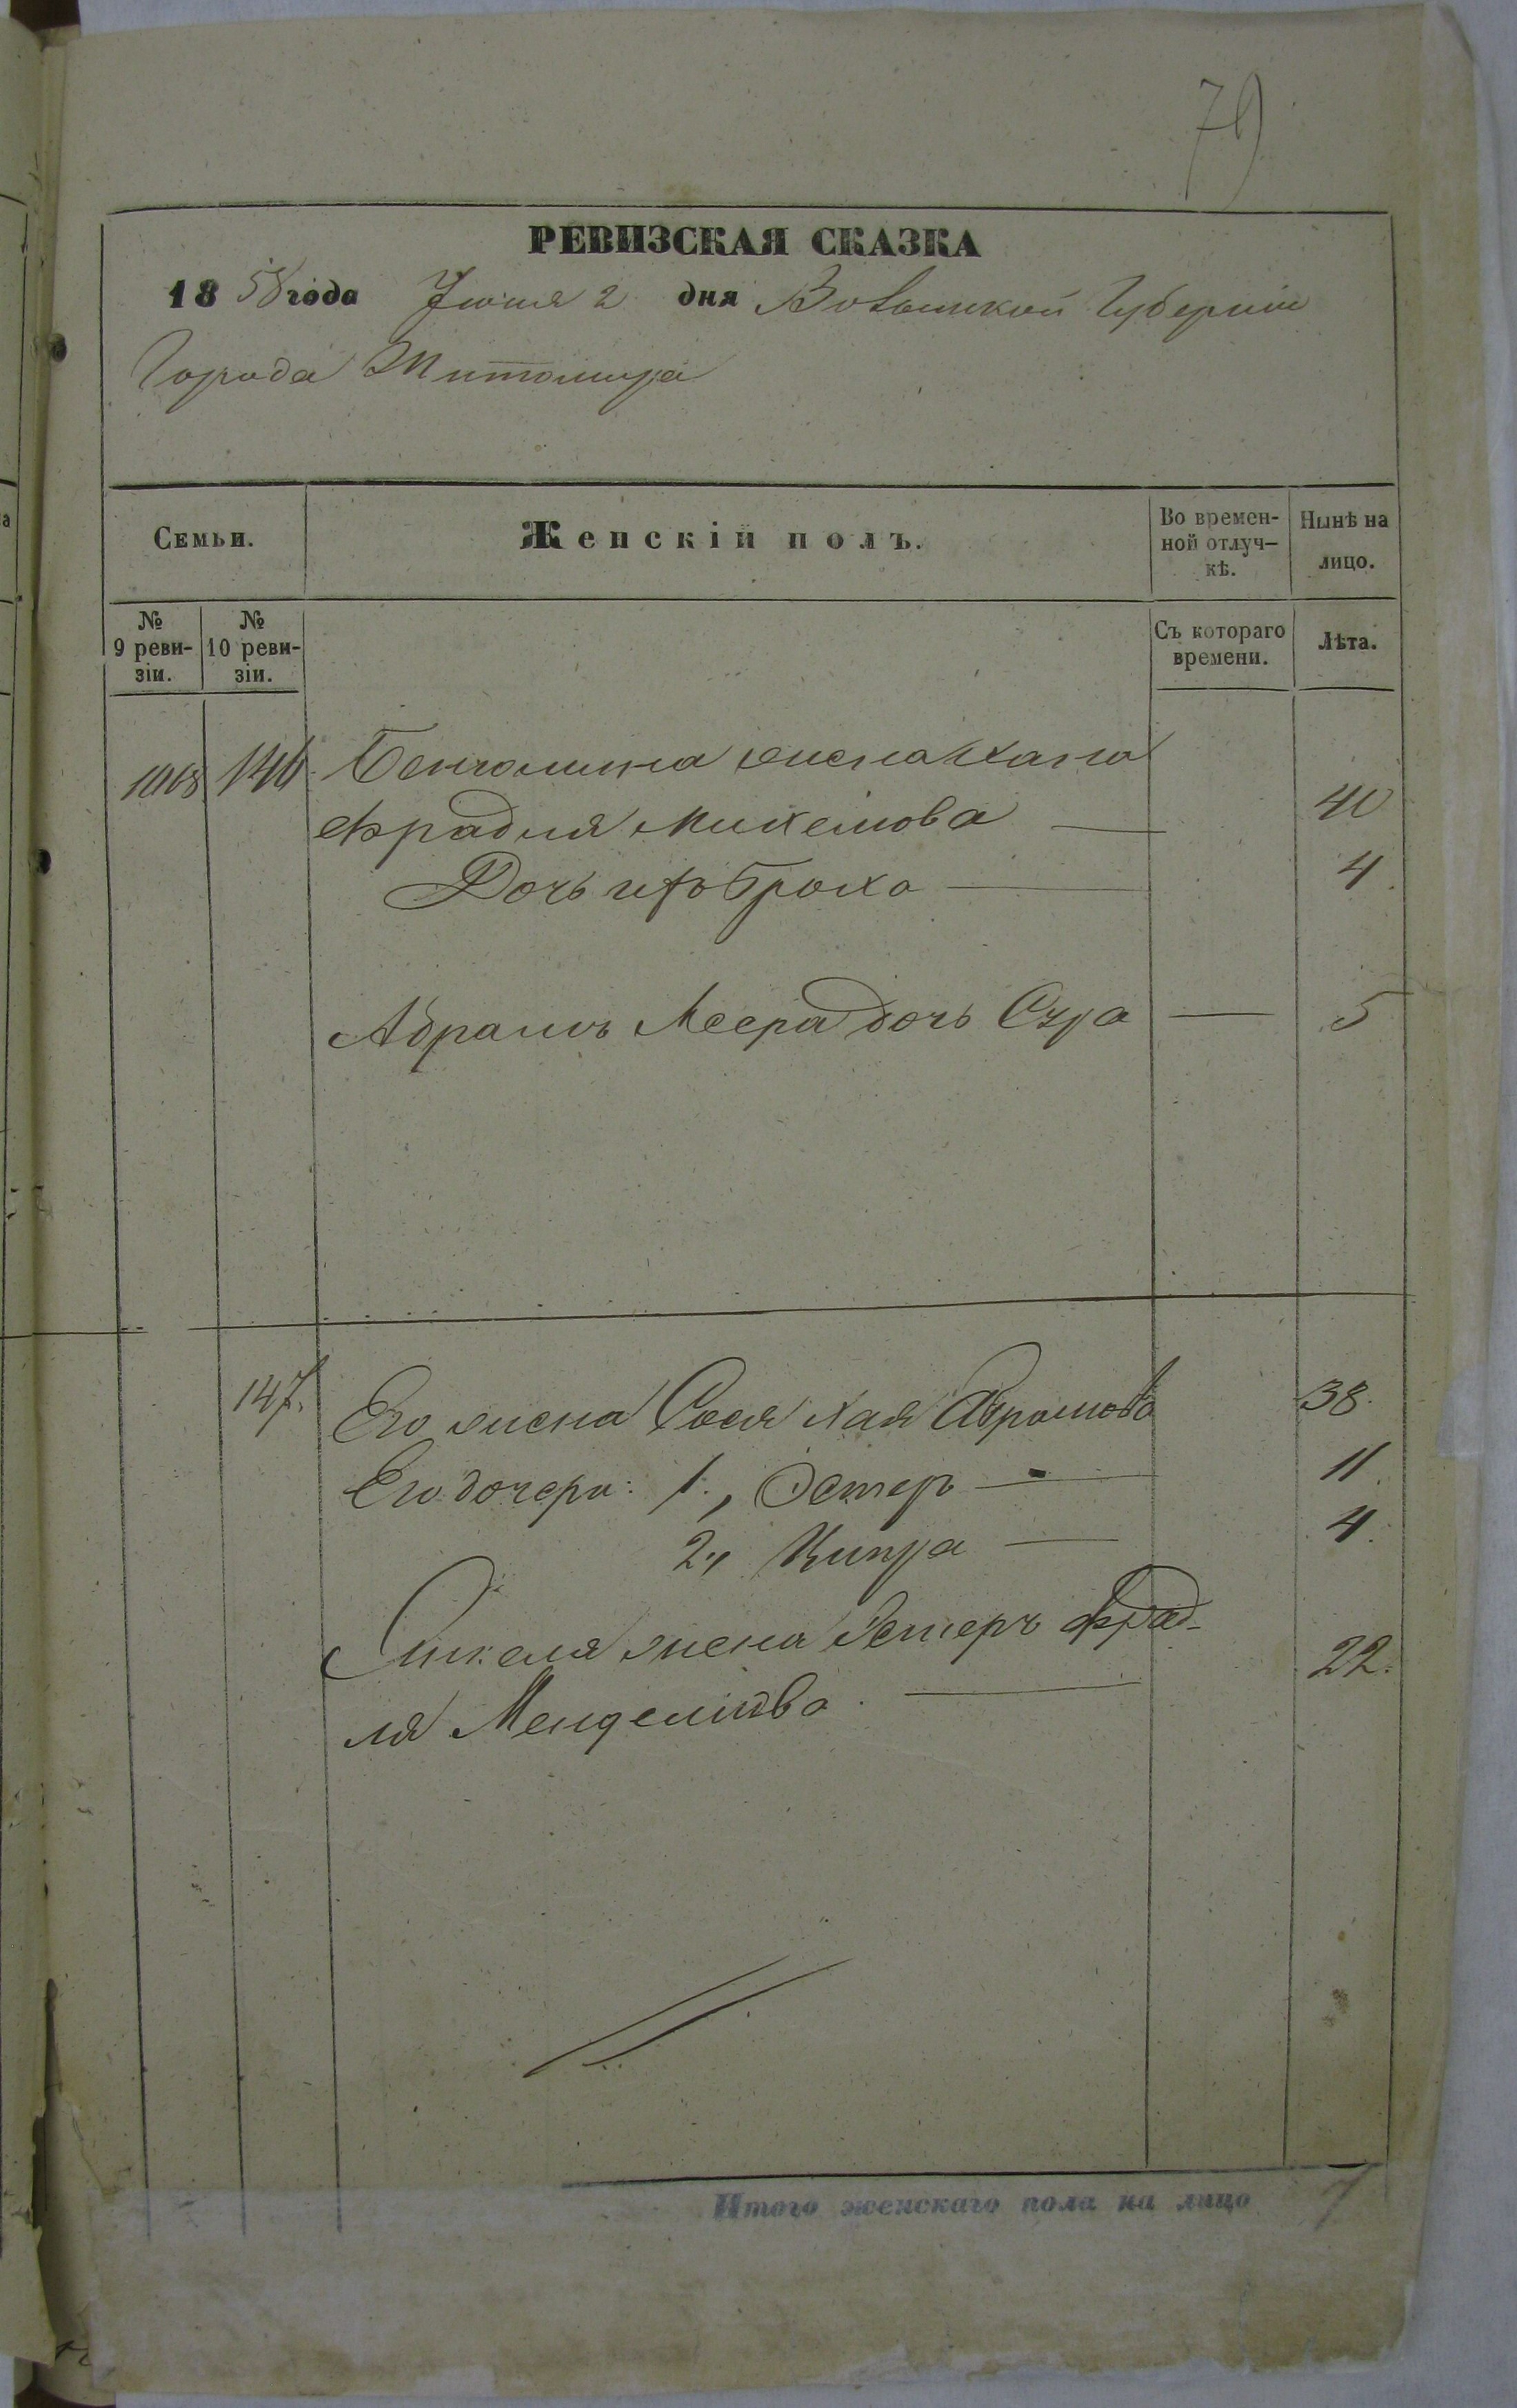 79
РЕВИЗСКАЯ СКАЗКА
1858 года Июня 2 дня Волынской Губерніи
Города Житомира
Семьи.
Женскій полъ.
Во времен-
ной отлуч-
кѣ.
Ныкѣ на
лицо.
№
9 реви-
зіи.
№
10 реви-
зіи.
Съ котораго
времени.
Лѣта.
1068 146 Бенюмина жена Хана
Фрадля Михелова — 40
Дочь ихъ Броха — 4.
Абрамъ Меера дочь Сура — 5
147. Его жена Сося Хая Абрамова 38.
Его дочери: 1., Эстеръ — 11.
2., Ципра — 4.
жена Эстеръ Фрад-
ля Менделіова. — 22.
Итого женскаго пола на лицо 7